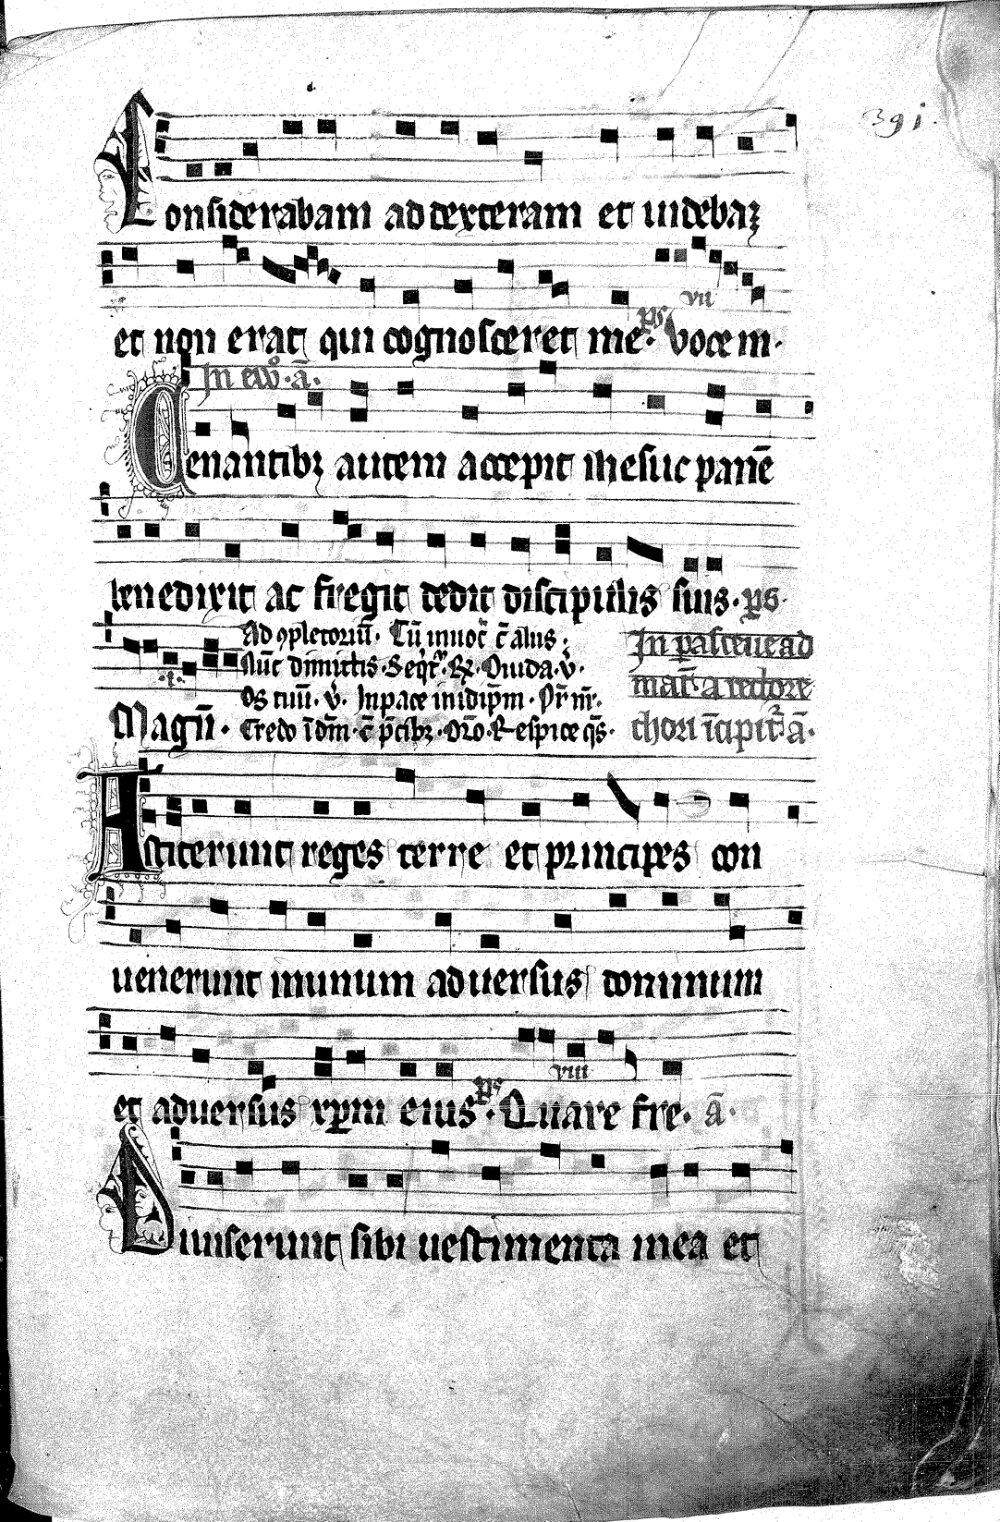 391.
Considerabam ad dexteram et uidebaʒ
et non erat qui cognosceret me. ps̄ Vocem. vii
In ewō. ā.
Cenantibʒ autem accepit ihesuc panē
benedixit ac fregit dedit discipulis suis. ps.
Ad ꝯpletoriū. Cū inuoc̄ c̄ alus.
Nūc dimittis. Seqr̄. R. Diuida. v̄.
Os tuū. v̄. In pace inidip̄m. Pr̄ nr̄.
Magn̄. Credo ī dm̄. c̄ p̄cibʒ. Oro. Respice qs̄.
In pasceue ad
mat̄. a rectore
chori īcipit̄. ā.
Astiterunt reges terre et principes con
uenerunt in unum aduersus dominum
et aduersus xp̄m eius. ps̄ Quare fre. ā. viii
Diuiserunt sibi uestimenta mea et